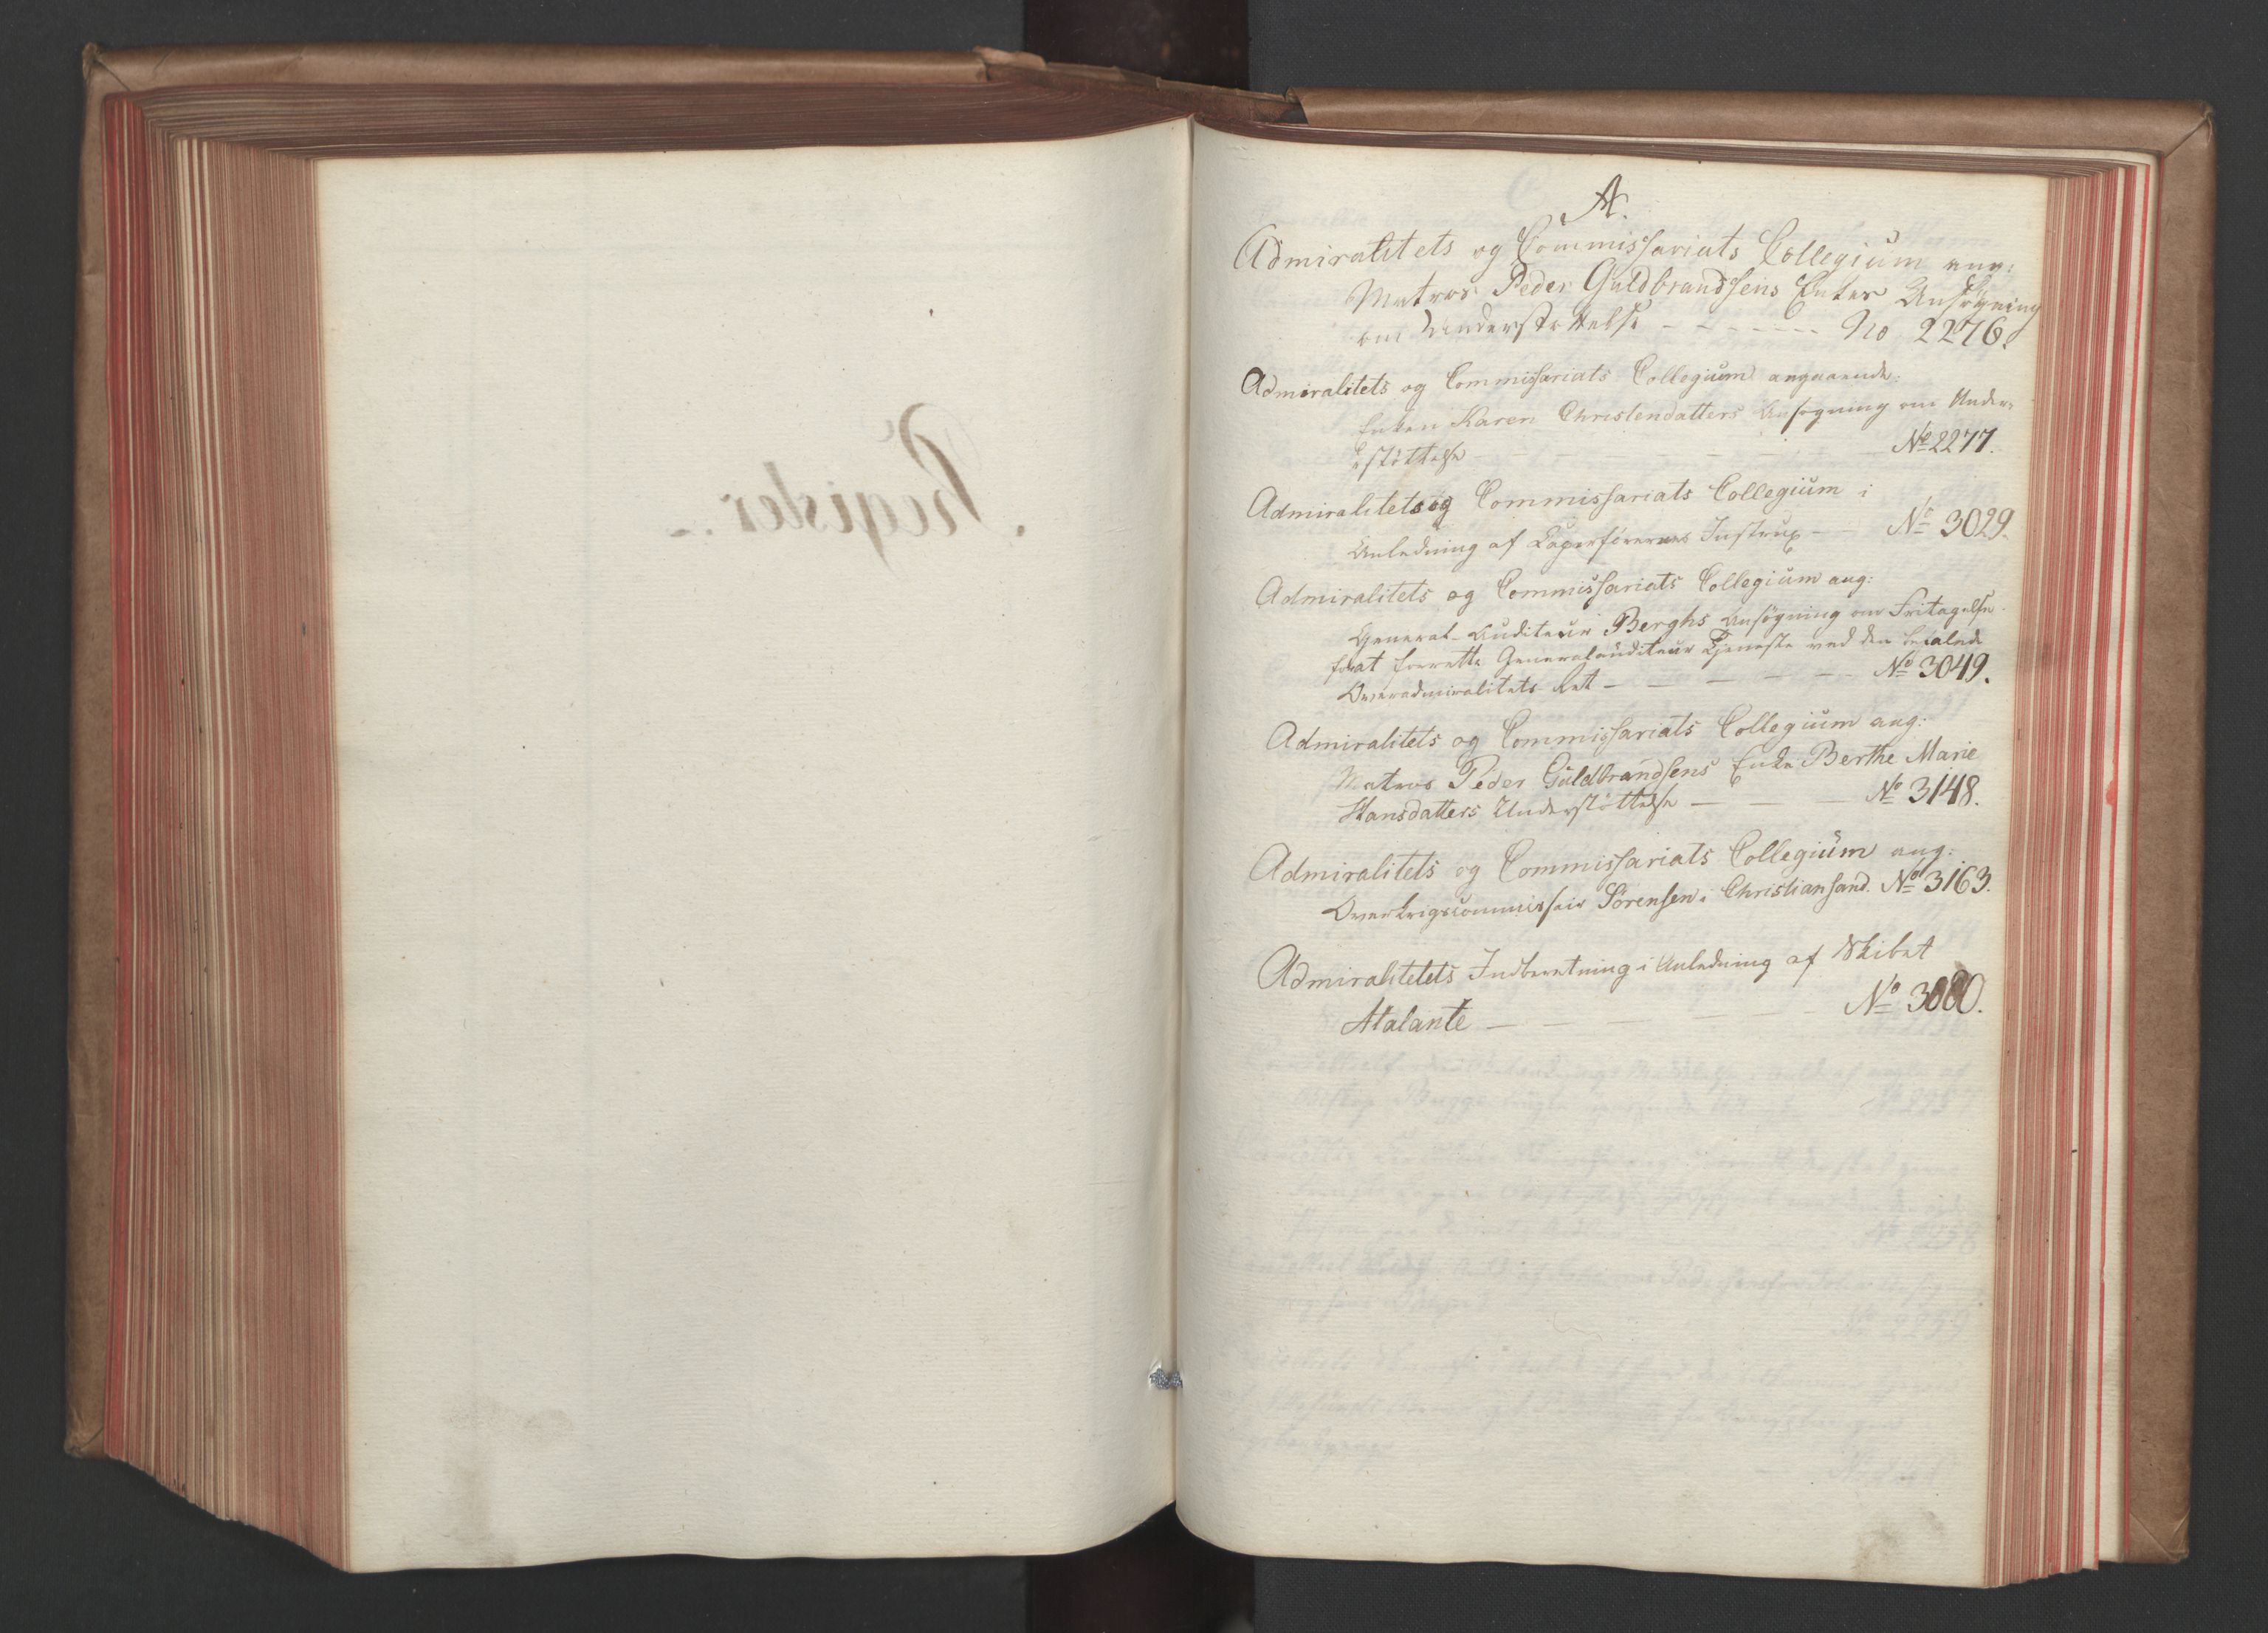 Register.
A.
Admiralitets og Commissariats Collegium ang:
Matros Peder Guldbrandsens Enkes Ansøgning
om Understøttelse - - - - - - - No 2276.
Admiralitets og Commissariats Collegium angaaende:
Enken Karen Christendatters Ansøgning om Under-
støttelse - - - - - - No 2277.
Admiralitets og Commissariats Collegium i
Anledning af Kaperførernes Instrux - No 3029.
Admiralitets og Commissariats Collegium ang:
General-Auditeur Berghs Ansøgning om Fritagelse
for at forrette Generalauditeur Tjeneste ved den
Overadmiralitets Ret - - - - - No 3049.
Admiralitets og Commissariats Collegium ang:
Matros Peder Guldbrandsens Enke Berthe Marie
Hansdatters Understøttelse - - - No 3148.
Admiralitets og Commissariats Collegium ang:
Overkrigscommissair Sörensen i Christiansand. No 3163.
Admiralitetets Indberetning i Anledning af Skibet
Atalante - - - - - - No 3080.